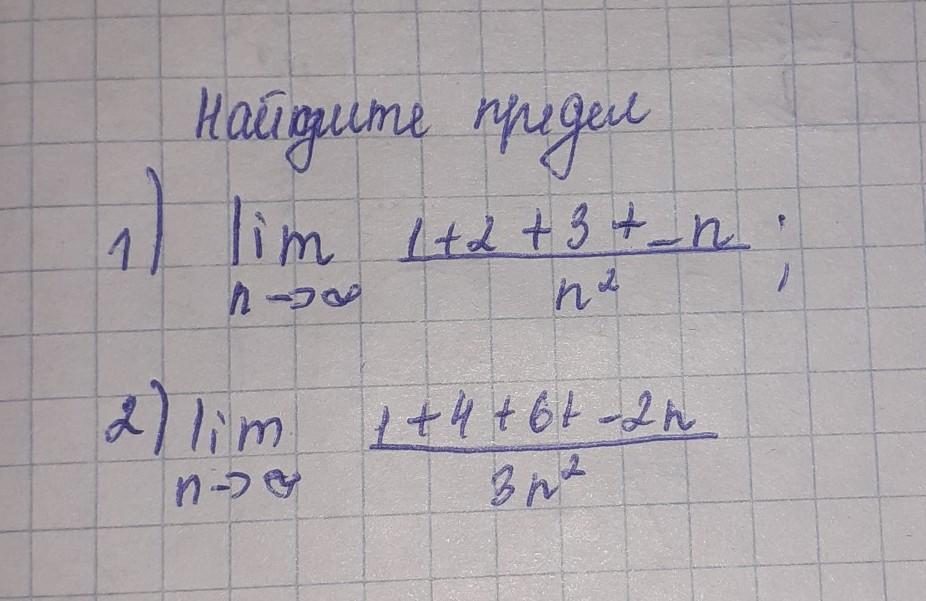 Найдите предел
1) lim 1+2+3+–n ;
n→∞ n²
2) lim 1+4+6+–2n
n→∞ 3n²